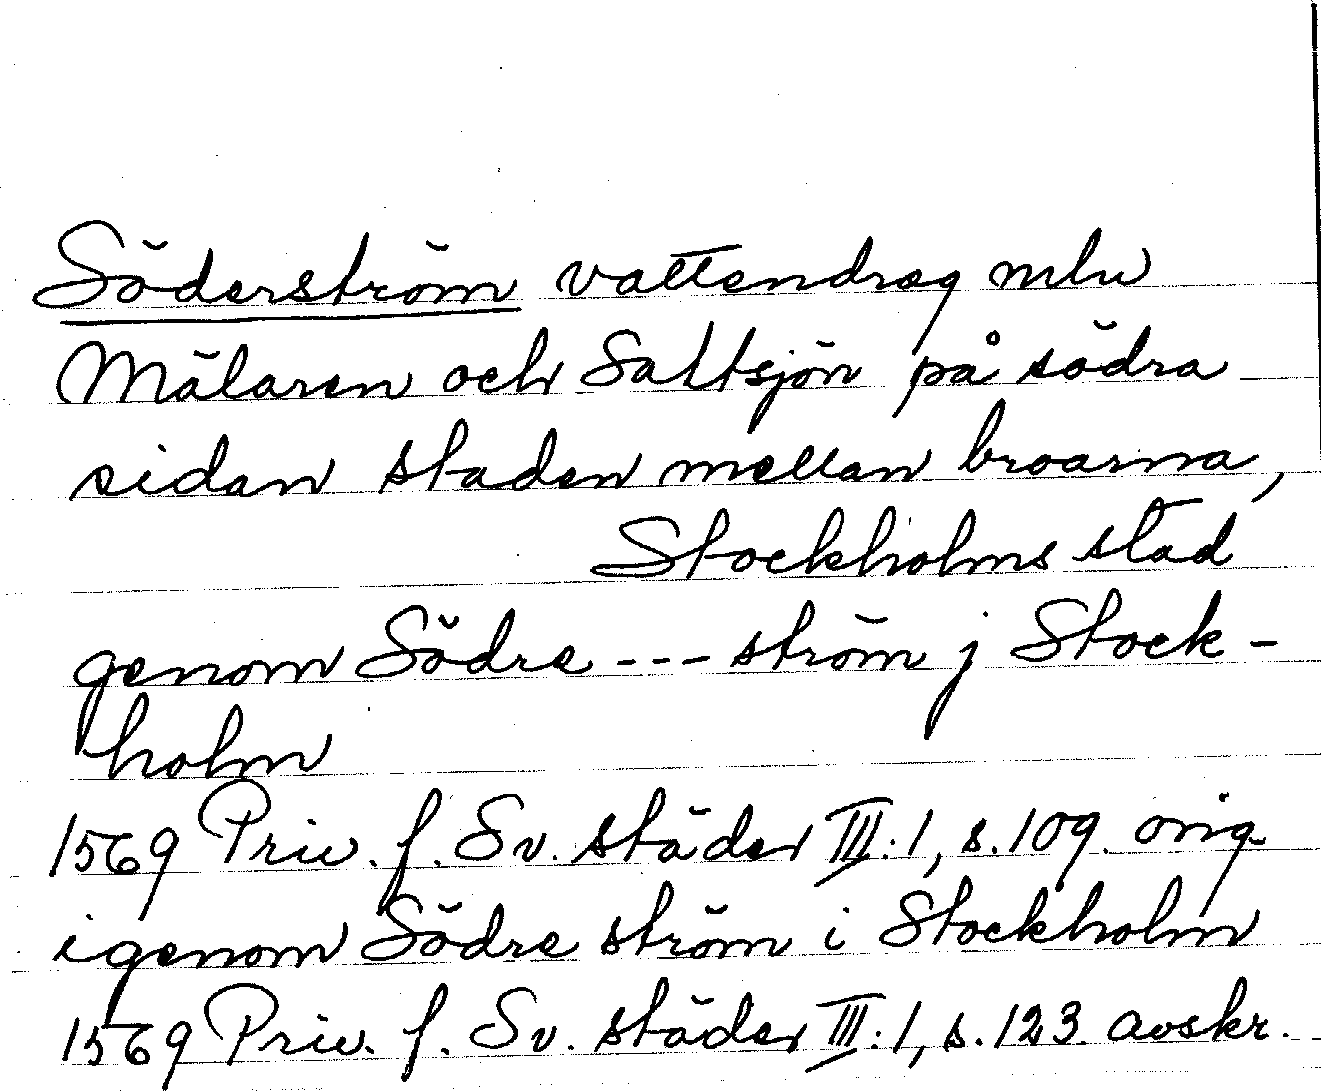 Söderström vattendrag mlu
Mälaren och Saltsjön på södra
sidan staden mellan broarna,
Stockholms stad
genom Södre --- ström j Stock-
holm
1569 Priv. f. Sv. städer III:1, s. 109. orig.
igenom Södre ström i Stockholm
1569 Priv. f. Sv. städer III:1, s. 123. avskr.